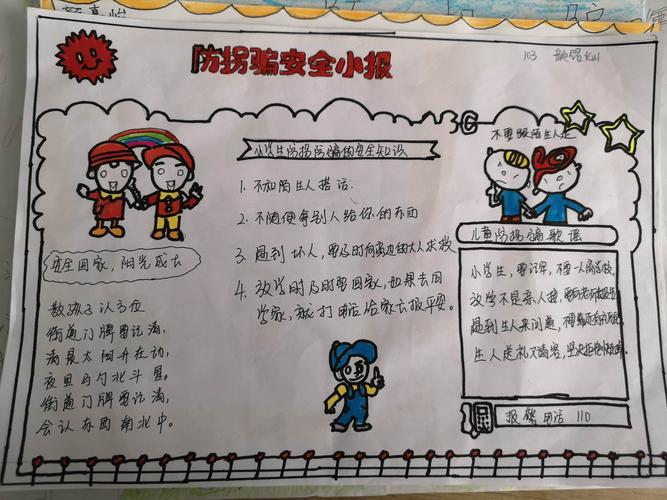 防拐骗安全小报
103
小学生防拐防骗的安全知识
1. 不和陌生人搭话.
2. 不随便拿别人给你的东西
3. 遇到坏人,要及时向周边的大人求救
4. 放学时及时要回家,如果去同
学家,就打电话给家长报平安。
安全回家,阳光成长
教孩子认方位
街道门牌要记清,
清晨太阳升在动,
夜里勺北斗星,
街道门牌要记清,
会认东西南北中。
不要跟陌生人走
儿童防拐骗歌谣
小学生,要记牢,不要一人离学校,
放学不是亲人接,
遇到生人来问道,
生人送礼又请客,
报警电话 110